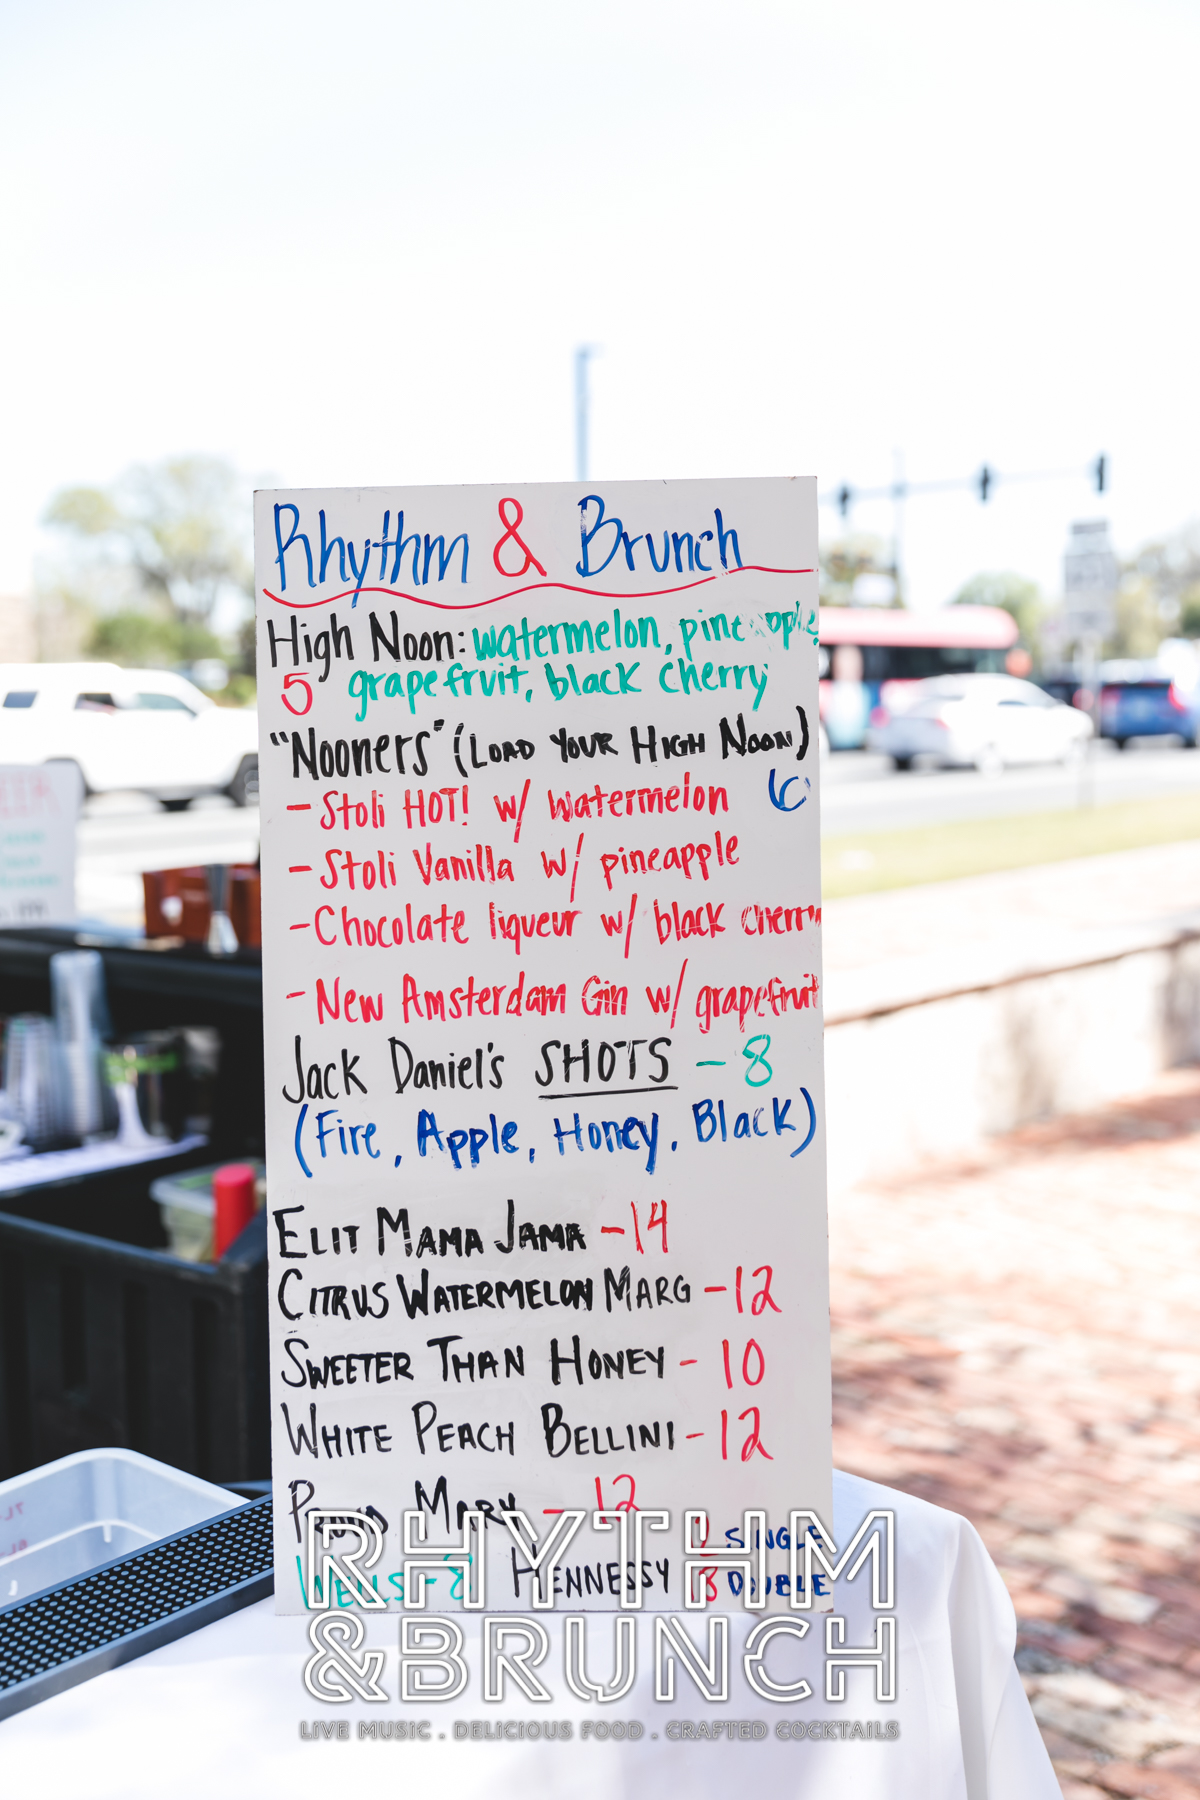 Rhythm & Brunch
High Noon: watermelon, pineapple,
5 grapefruit, black cherry
"Nooners" (LOAD YOUR HIGH NOON)
- Stoli HOT! w/ watermelon 6
- Stoli Vanilla w/ pineapple
- Chocolate liqueur w/ black cherry
- New Amsterdam Gin w/ grapefruit
Jack Daniel's SHOTS - 8
(Fire, Apple, Honey, Black)
ELIT MAMA JAMA - 14
CITRUS WATERMELON MARG - 12
SWEETER THAN HONEY - 10
WHITE PEACH BELLINI - 12
PROUD MARY - 12
SINGLE
WELLS - 8 HENNESSY DOUBLE
RHYTHM
&BRUNCH
LIVE MUSIC . DELICIOUS FOOD . CRAFTED COCKTAILS